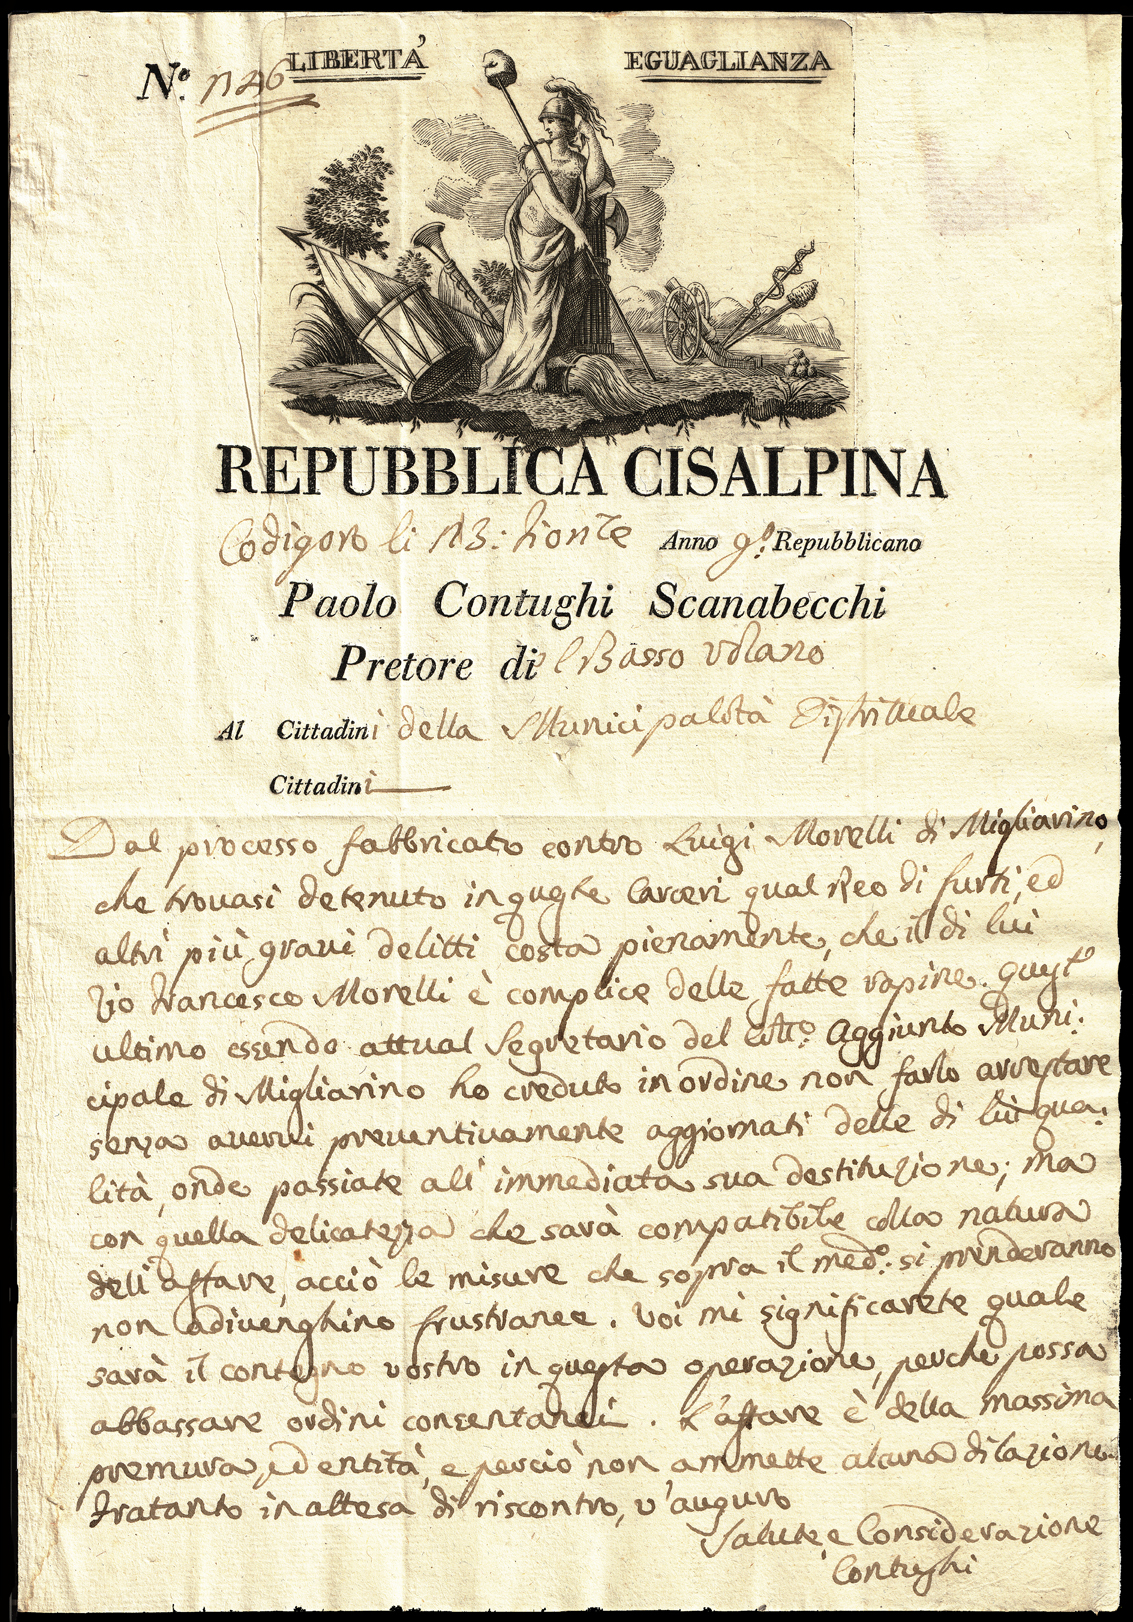 LIBERTÀ EGUAGLIANZA
N.º 1746
REPUBBLICA CISALPINA
Codigoro li 13: Fion:le Anno 9º: Repubblicano
Paolo Contughi Scanabecchi
Pretore del Basso Volano
Al Cittadini della Municipalità Distrittuale
Cittadini
Dal processo fabbricato contro Luigi Morelli di Migliarino,
che trovasi detenuto in queste Carceri qual Reo di furti, ed
altri più gravi delitti costa pienamente, che il di lui
Zio Francesco Morelli è complice delle fatte rapine. Quest'
ultimo essendo attual Segretario del Citt:º Aggiunto Muni:
cipale di Migliarino ho creduto in ordine non farlo arrestare
senza avervi preventivamente aggiornati delle di lui qua:
lità, onde passiate all'immediata sua destituzione; ma
con quella delicatezza che sarà compatibile colla natura
dell'affare, acciò le misure che sopra il med:º si prenderanno
non adivenghino frustranee. Voi mi significarete quale
sarà il contegno vostro in questa operazione, perchè possa
abbassare ordini consentanei. L'affare è della massima
premura, ed entità, e perciò non ammette alcuna dilazione.
Fratanto in attesa di riscontro, v'auguro
Salute, e Considerazione
Contughi